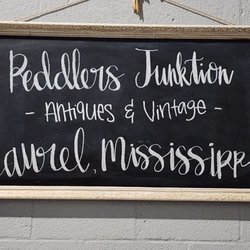 Peddlers Junktion
- Antiques & Vintage -
aurel, Mississipp